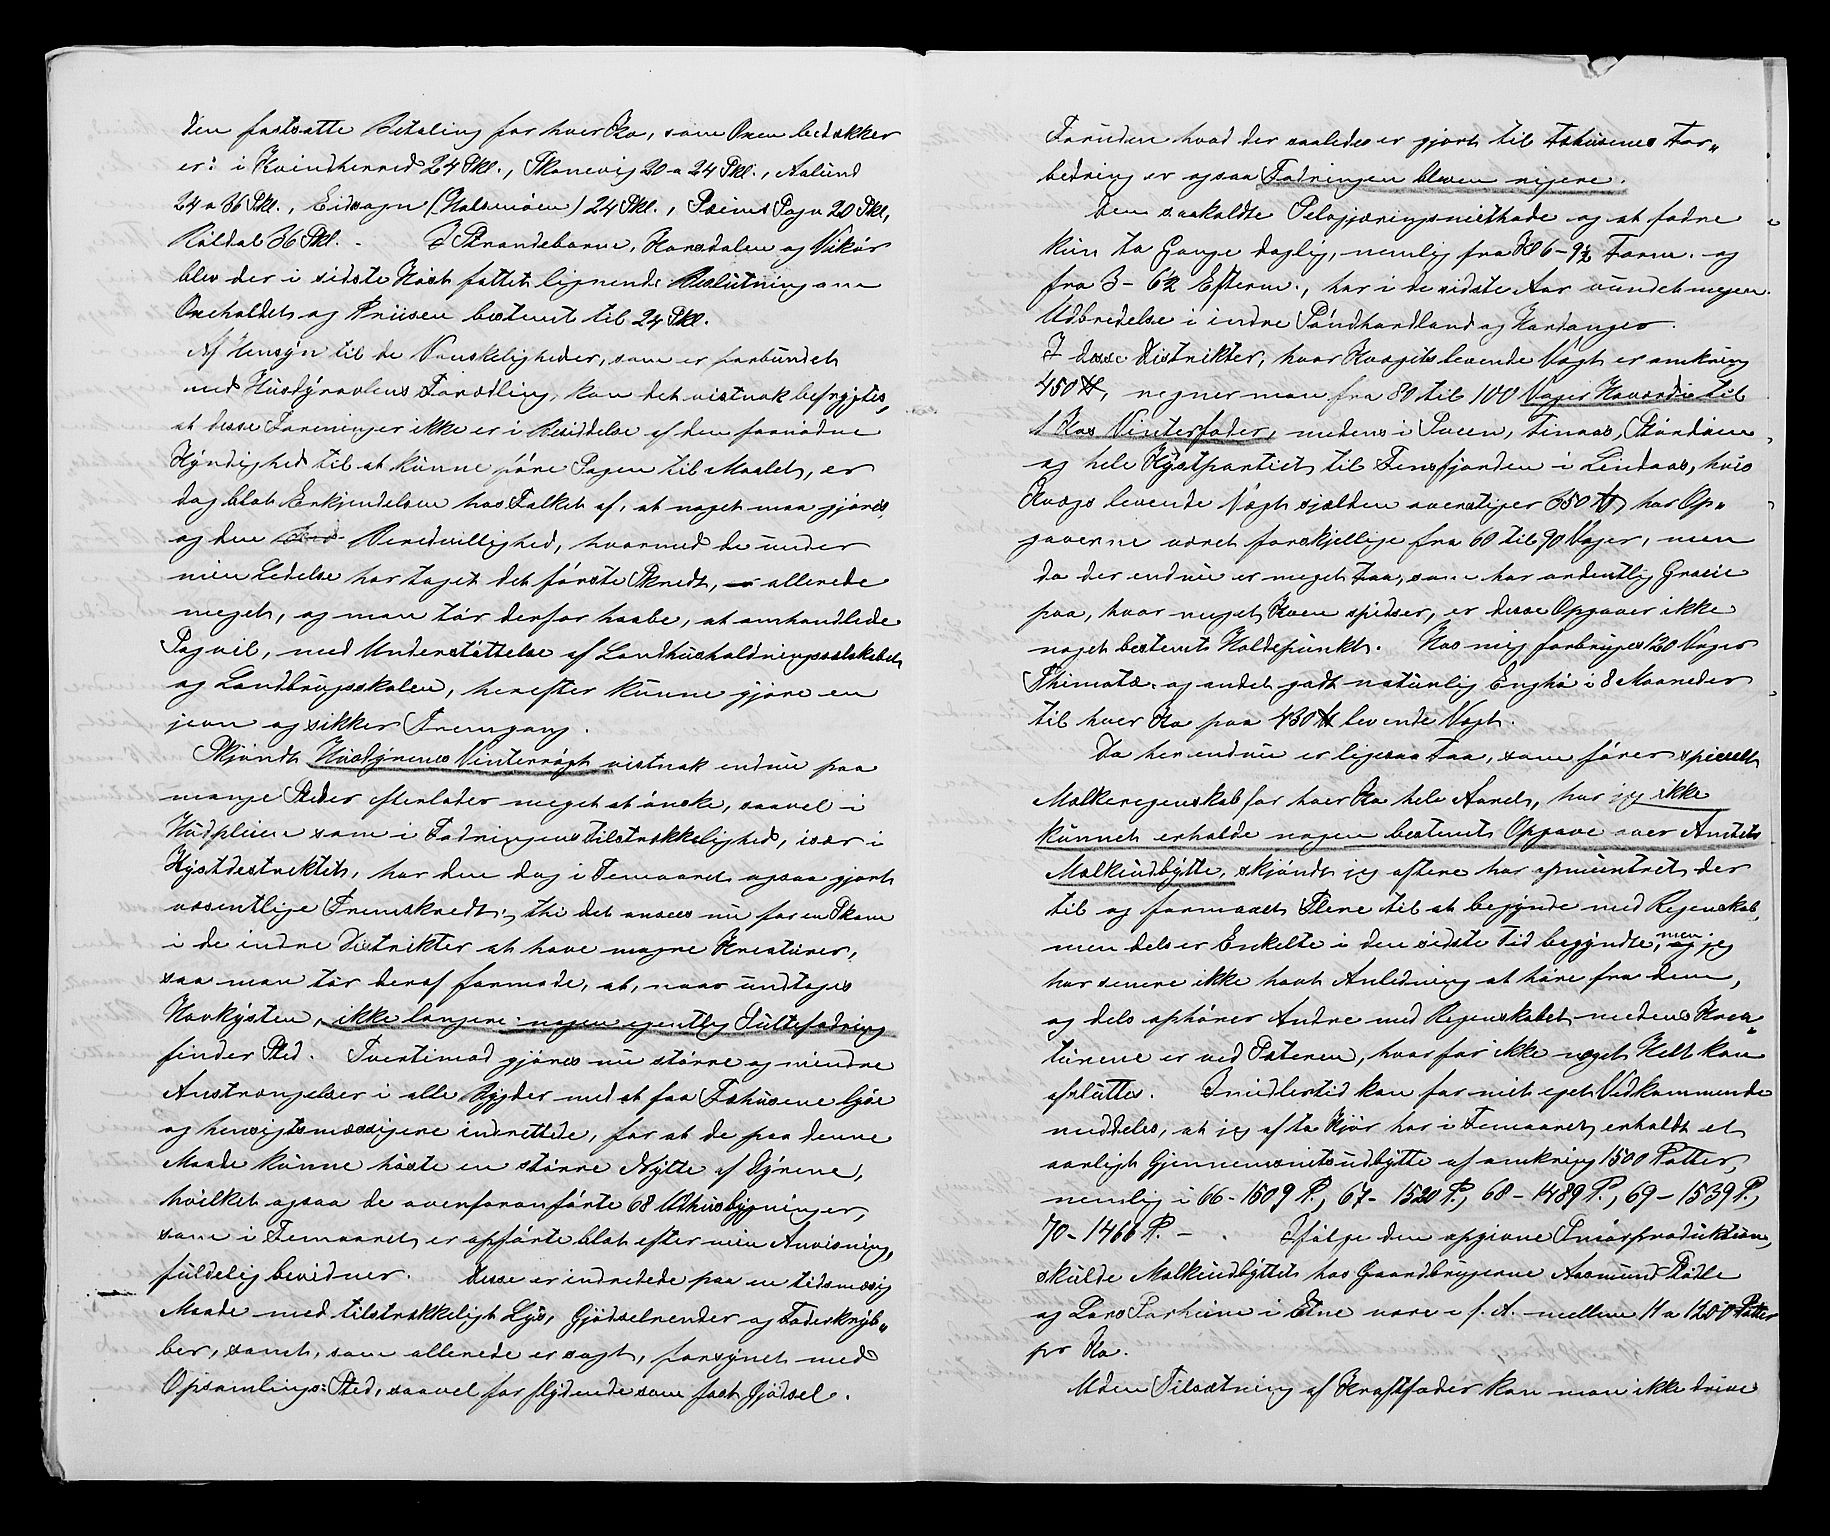 den fastsatte Betaling for hver Ko, som Oxen bedækker
er: i Kvindherred 24 Skl., Skonevig 20 a 24 Skl., Aalund
24 a 36 Skl., Eidsogn (Holsenøen) 24 Skl., Seims Sogn 20 Skl,
Röldal 36 Skl. - I Strandebarm, Korsdalen og Vikör
blev der i sidste Höst fattet lignende Beslutning om
Oxeholdet og Prisen bestemt til 24 Skl.
Af Hensyn til de Vanskeligheder, som er forbundet
med Husdyravlens Forædling, kan det vistnok befrygtes,
at disse Foreninger ikke er i Besiddelse af den fornödne
Kyndighed til at kunne före Sagen til Maalet, er
dog blot Erkjendelsen hos Folket af, at noget maa gjöres,
og den Beredvillighed, hvormed de under
min Ledelse har taget det förste Skridt, allerede
meget, og man tör derfor haabe, at omhandlede
Sag vil, med Understöttelse af Landhusholdningsselskabet
og Landbrugsskolen, herefter kunne gjöre en
jevn og sikker Fremgang.
Skjöndt Husdyrenes Vinterrögt vistnok endnu paa
mange Steder efterlader meget at önske, saavel i
Hudpleien som i Fodringens Tilstrækkelighed, især i
Kystdistriktet, har den dog i Femaaret ogsaa gjort
væsentlige Fremskridt; thi det ansees nu for en Skam
i de indre Distrikter at have magre Kreaturer,
saa man tör deraf formode, at, naar undtages
Havkysten, ikke længere nogen egentlig Sultefodring
finder Sted. Tvertimod gjöres nu större og mindre
Anstrængelser i alle Bygder med at faa Fæhusene lyse
og hensigtsmæssigere indrettede, for at de paa denne
Maade kunne höste en större Nytte af Dyrene,
hvilket ogsaa de ovenforanförte 68 Udhusbygninger,
som i Femaaret er opförte blot efter min Anvisning,
fuldelig bevidner. Disse er indredede paa en tidsmæssig
Maade med tilstrækkeligt Lys, Gjödselrender og Foderkryb„
ber, samt, som allerede er sagt, forsynet med
Opsamlings-Sted, saavel for flydende som fast Gjödsel.
Foruden hvad der saaledes er gjort til Fæhusenes For„
bedring er ogsaa Fodringen bleven nyere.
Den saakaldte Selvgjæringsmethode og at fodre
kun to Gange daglig, nemlig fra Kl 6 - 9½ Form. og
fra 3 - 6½ Efterm., har i de sidste Aar vundet megen
Udbredelse i indre Söndhordland og Hardanger.
I disse Distrikter, hvor Kvægets levende Vægt er omkring
450 ℔, regner man fra 80 til 100 Voger Høværdi til
1 Kos Vinterfoder, medens i Sveen, Finaas, Stordöen
og hele Kystpartiet til Fensfjorden i Lindaas, hvis
Kvægs levende Vægt sjælden overstiger 350 ℔, har Op„
gaverne været forskjellige fra 60 til 90 Voger, men
da der endnu er meget Faa, som har ordentlig Greie
paa, hvor meget Koen spiser, er disse Opgaver ikke
noget bestemt Holdepunkt. Hos mig forbruges 120 Voger
Thimotæ- og andet godt naturlig Enghø i 8 Maaneder
til hver Ko paa 430 ℔ levende Vægt.
Da her endnu er ligesaa Faa, som fører specielt
Melkeregnskab for hver Ko hele Aaret, har jeg ikke
kunnet erholde nogen bestemt Opgave over Amtets
Melkeudbytte, skjöndt jeg oftere har opmuntret der
til og formaaet Flere til at begynde med Regnskab,
men dels er Enkelte i den sidste Tid begyndte, men jeg
har senere ikke havt Anledning at höre fra dem,
og dels ophörer Andre med Regnskabet medens Krea„
turene er ved Sæteren, hvorfor ikke noget Helt kan
afsluttes. Imidlertid kan for mit eget Vedkommende
meddeles, at jeg af to Kjör har i Femaaret erholdt et
aarligt Gjennemsnitsudbytte af omkring 1500 Potter,
nemlig i 66 - 1509 P., 67 - 1520 P., 68 - 1489 P., 69 - 1539 P.,
70 - 1466 P. - Ifölge den opgivne Smörproduktion,
skulde Melkeudbyttet hos Gaardbrugerne Aasmund Stödle
og Lars Sørheim i Etne være i f. A. mellem 11 a 1200 Potter
pr Ko.
Uden Tilsætning af Kraftfoder kan man ikke drive